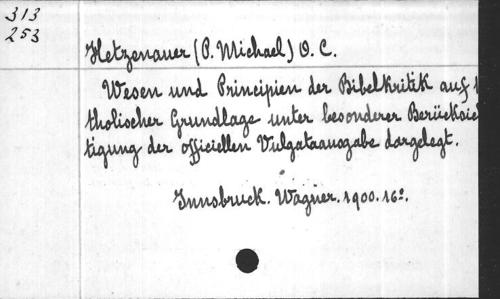 313
253
Hetzenauer (P. Michael) O. C.
Wesen und Principien der Bibelkritik auf
tholischer Grundlage unter besonderer Berücksic
tigung der officiellen Vulgataausgabe dargelegt.
Innsbruck. Wagner. 1900. 16º.